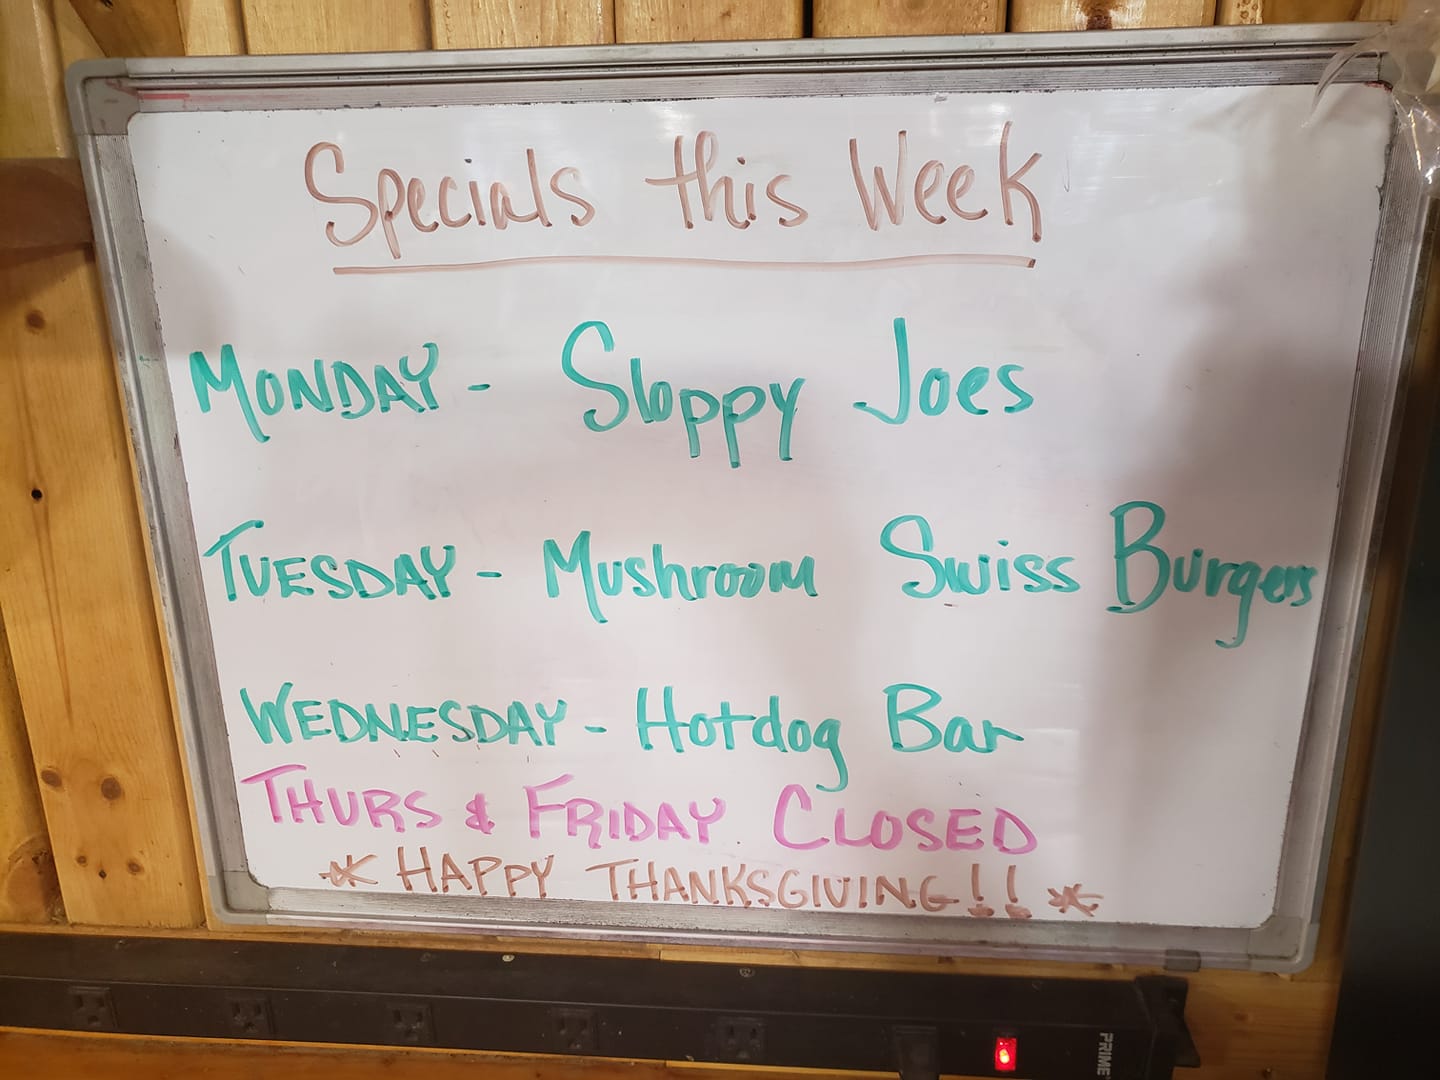 Specials this Week
MONDAY - Sloppy Joes
TUESDAY - Mushroom Swiss Burgers
WEDNESDAY - Hotdog Bar
THURS & FRIDAY CLOSED
* HAPPY THANKSGIVING!! *
PRIME